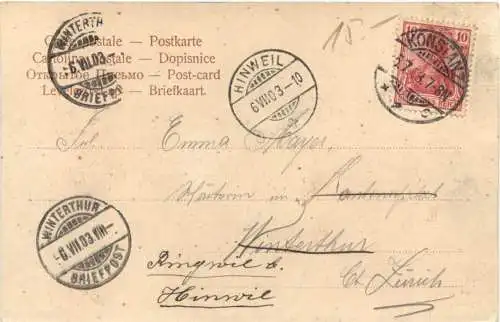 Carte postale — Postkarte
Cartolina postale — Dopisnice
Открытое письмо — Post-card
Levelező-Lap — Briefkaart.
15.-
WINTERTHUR
-6.VII.03.-
BRIEFPOST
HINWIL
6 VII 03-10
10
KONSTANZ
Frl. Emma Mayer,
in Kantonsspital
Winterthur
Ct. Zürich
Ringwil b.
Hinwil
WINTERTHUR
-6.VII.03.VIII-
BRIEFPOST